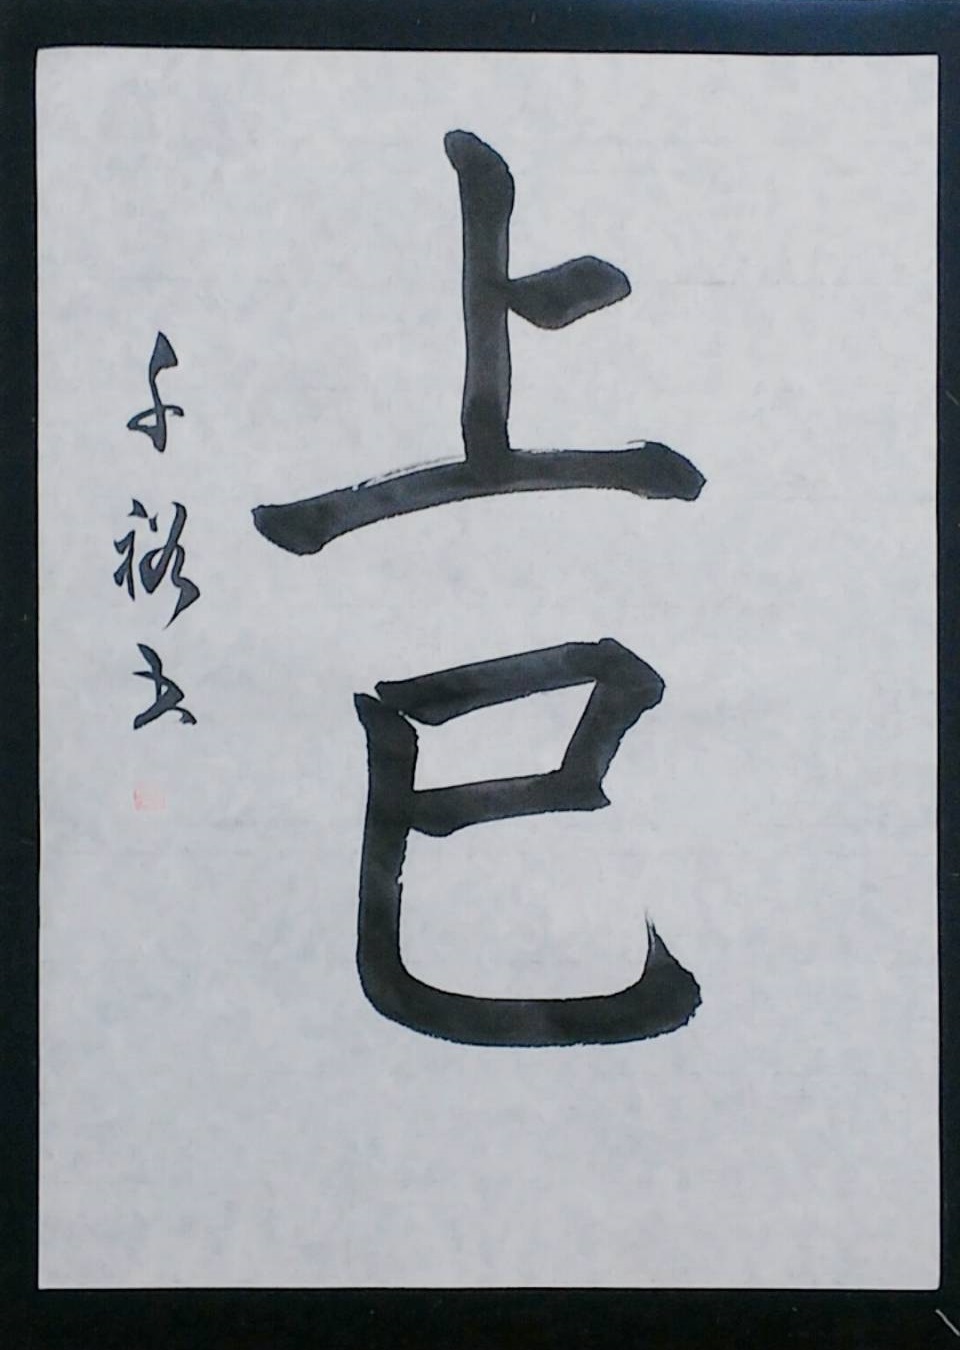 上巳
千裕書